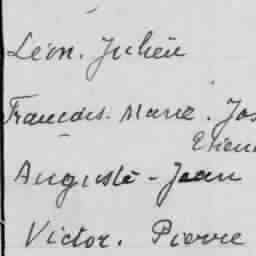 Léon. Julien
Francois. Marie. Jos
Etienn
Auguste - Jean
Victor. Pierre